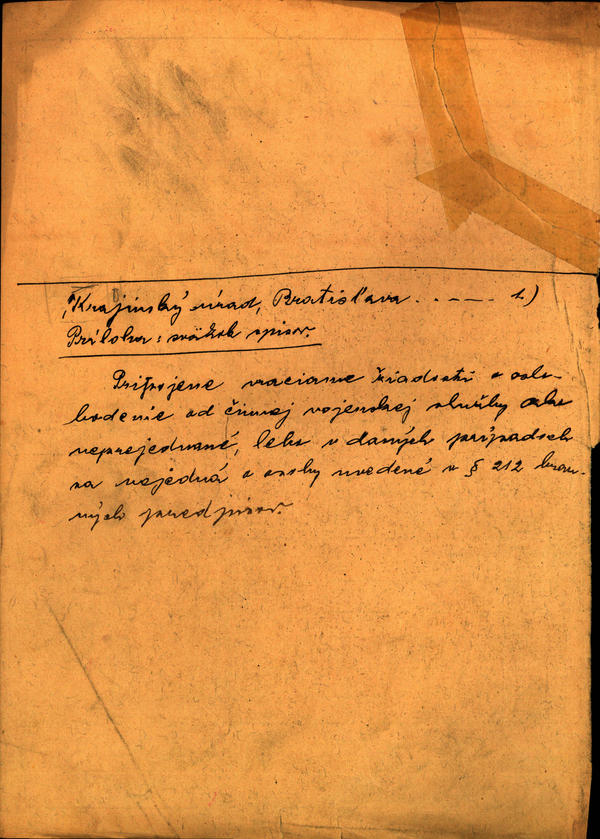 „Krajinský úrad, Bratislava . . – – – 1.)
Príloha: sväzok spisov.
Pripojene vraciame žiadosti o oslo-
bodenie od činnej vojenskej služby ako
neprejednané, lebo v daných prípadoch
sa nejedná o osoby uvedené v § 212 bran-
ných predpisov.